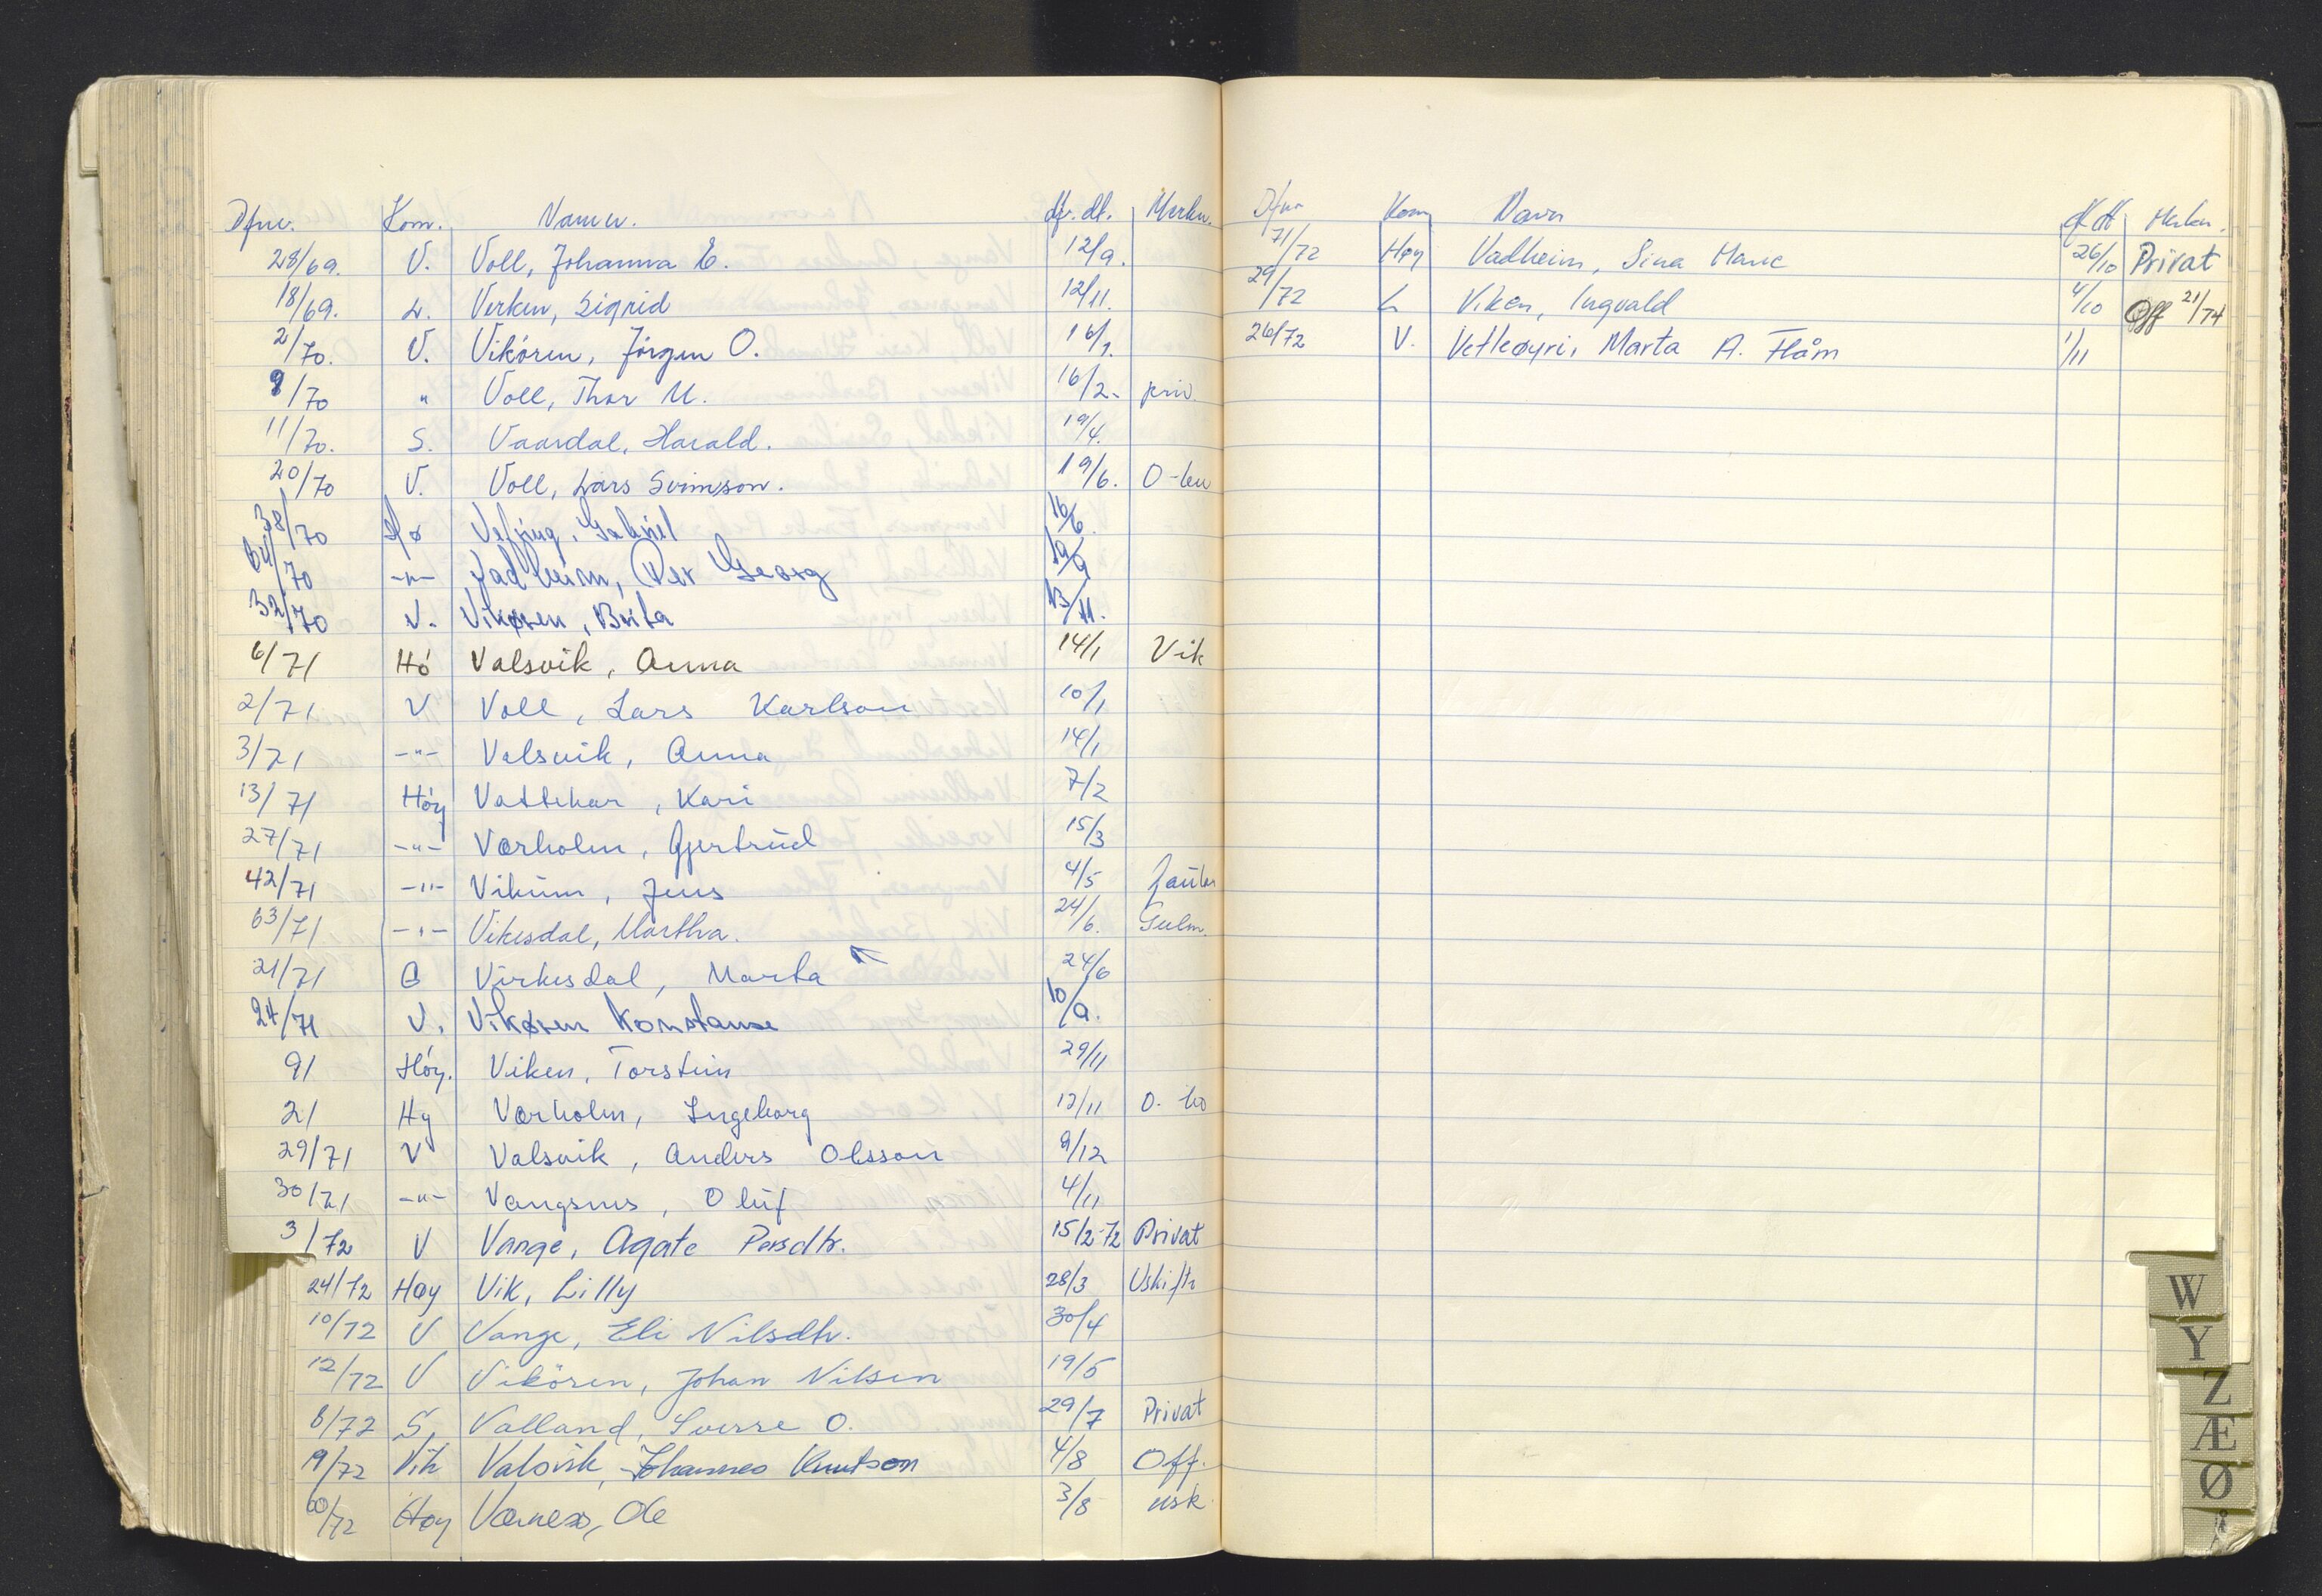 Dfnr. Kom. Namn. df. dt. Merkn.
28/69. V. Voll, Johanna E. 12/9.
18/69. L. Verken, Sigrid 12/11.
2/70. V. Vikören, Jörgen O. 16/1.
9/70 " Voll, Thor M. 16/2. priv.
11/70. S. Vaardal, Harald. 19/4.
20/70 V. Voll, Lars Sveinson. 19/6. O-bu
38/70 Hø Vefring, Gabriel 16/6.
64/70 -"- Vadheim, Per Georg 19/9
32/70 V. Vikøren, Brita 13/11.
6/71 Hö Valsvik, Anna 14/1 Vik
2/71 V Voll, Lars Karlson 10/1
3/71 -"- Valsvik, Anna 14/1
13/71 Höy Vattekar, Kari 7/2
27/71 -"- Værholm, Gjertrud 15/3
42/71 -"- Vikum, Jens 4/5
63/71 -"- Vikesdal, Martha. 24/6. Gulen.
21/71 G Virkesdal, Marta 24/6
24/71 V. Vikøren Konstanse 10/9.
91 Höy. Viken, Torstein 29/11
21 Hy Værholm, Ingeborg 12/11 O. bo
29/71 V Valsvik, Anders Olsson 9/12
30/71 -"- Vangsnes, Oluf 4/11
3/72 V Vange, Agate Persdtr. 15/2-72 Privat
24/72 Høy Vik, Lilly 28/3 Uskifte
10/72 V Vange, Eli Nilsdtr. 30/4
12/72 V Vikören, Johan Nilsen 19/5
8/72 S, Valland, Sverre O. 29/7 Privat
19/72 Vik Valsvik, Johannes Knutson 4/8 Off.
60/72 Høy Værnes, Ole 3/8 usk.
Dfnr Kom Navn df dt Merkn.
71/72 Høy Vadheim, Sina Marie 26/10 Privat
29/72 L Viken, Ingvald 4/10 Off 21/74
26/72 V. Vetleøyri, Marta A. Flåm 1/11
W
Y
Z
Æ
Ø
Å